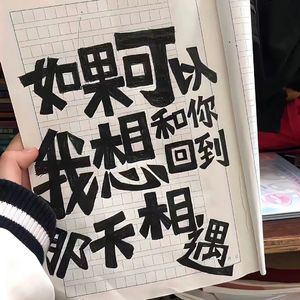 如果可以
我想和你回到
那天相遇